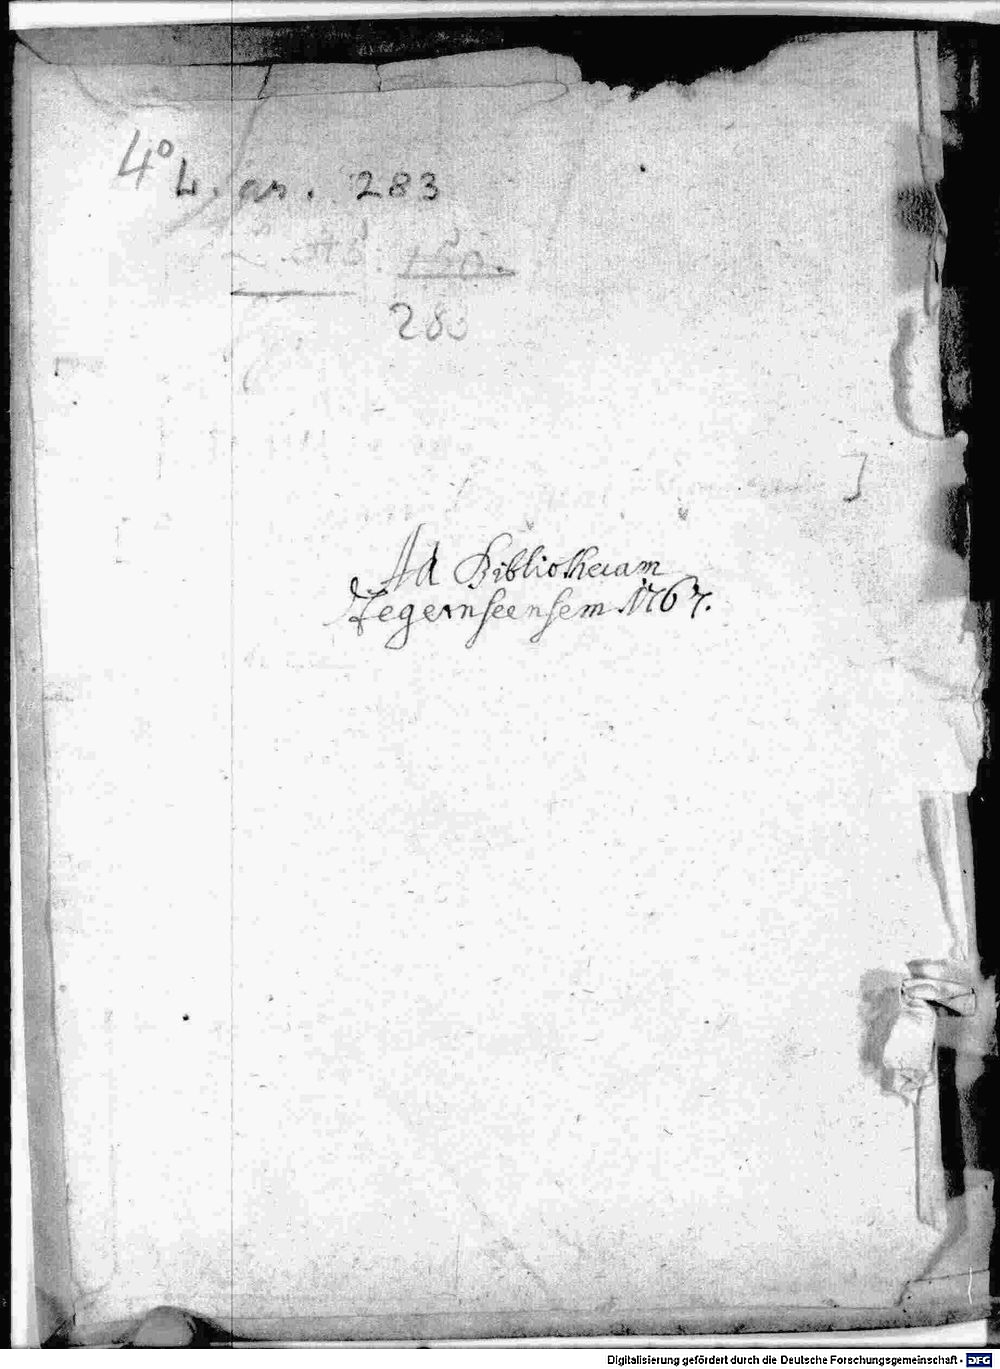 4° L. gr. 283
280
Ad Bibliothecam
Tegernseensem 1767.
Digitalisierung gefördert durch die Deutsche Forschungsgemeinschaft - DFG